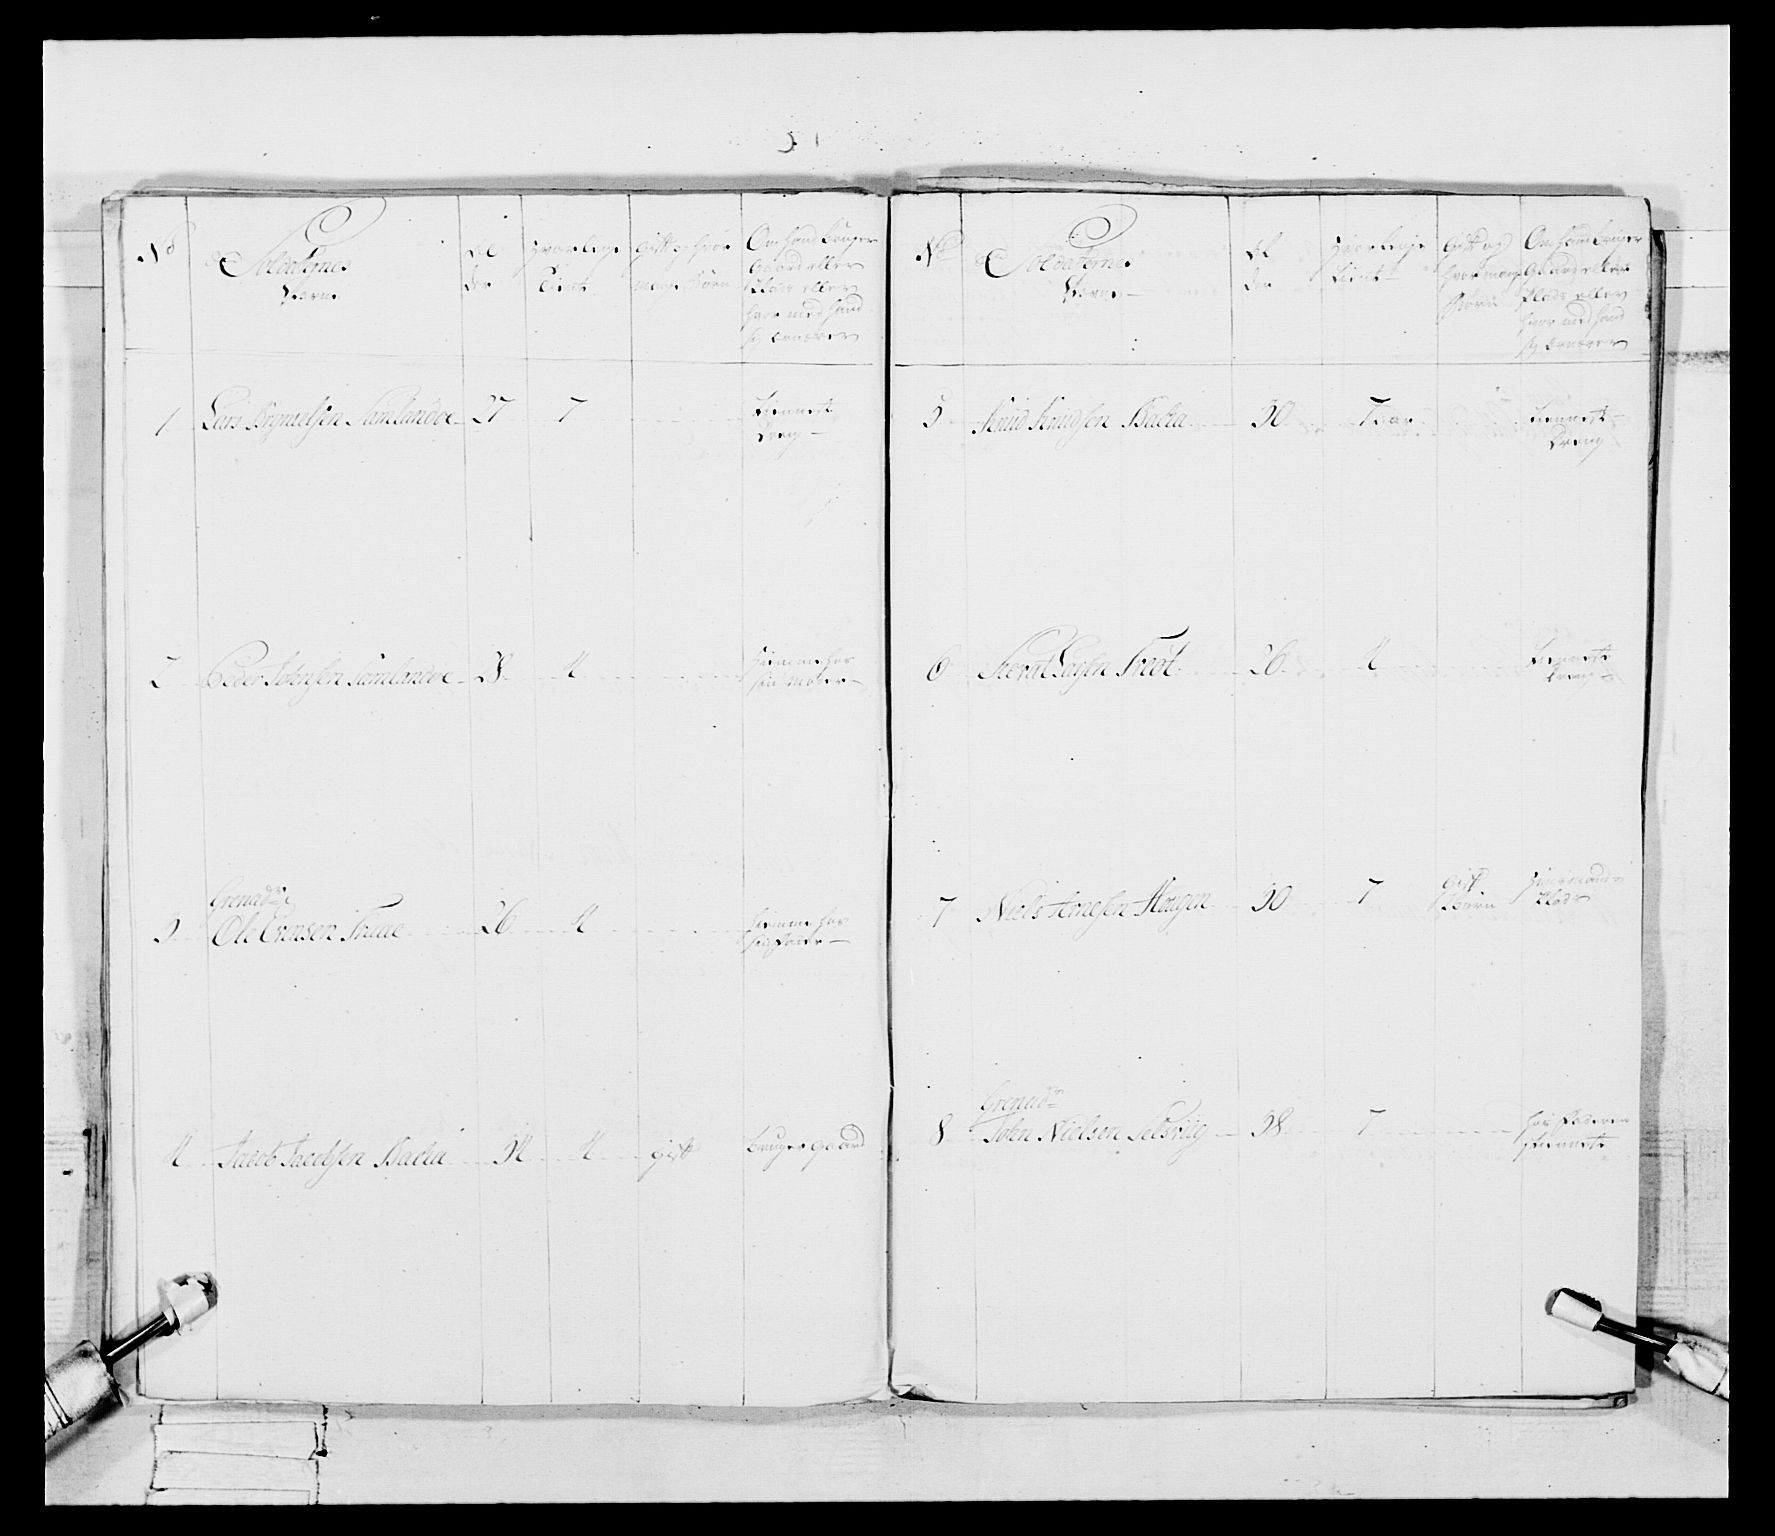 No
Soldaternes
Nafne
Al
der
Hvorlenge
Tient
Gift og hvor
mange Børn
Om hand bruger
Gaard eller
Plads eller
hvor med hand
sig ernærer
1 Lars Brynielsen Samlandøe 27 7 Tienneste
Dreng
2 Peder Johnsen Samlandøe 28 4 Hiemme hos
sin Moder
Grenadr
3 Ole Ennsen Traae 26 4 hiemme hos
sin Fader
4 Jacob Jacobsen Backa 34 4 gift bruger gaard
No
Soldaternes
Nafne
Al
der
Hvorlenge
tient
Gift og
hvor mange
Børn
Om hand bruger
Gaard eller
Plads eller
hvor med hand
sig ernærer
5 Knud Knudsen Backa 30 7 aar Tienneste
Dreng
6 26 4 Tienneste
Dreng
7 Niels Arnesen Hougen 30 7 Gift
Børn
Plads
Grenadr
8 John Nielsen Selsviig 38 7 hos Faderen
tienneste